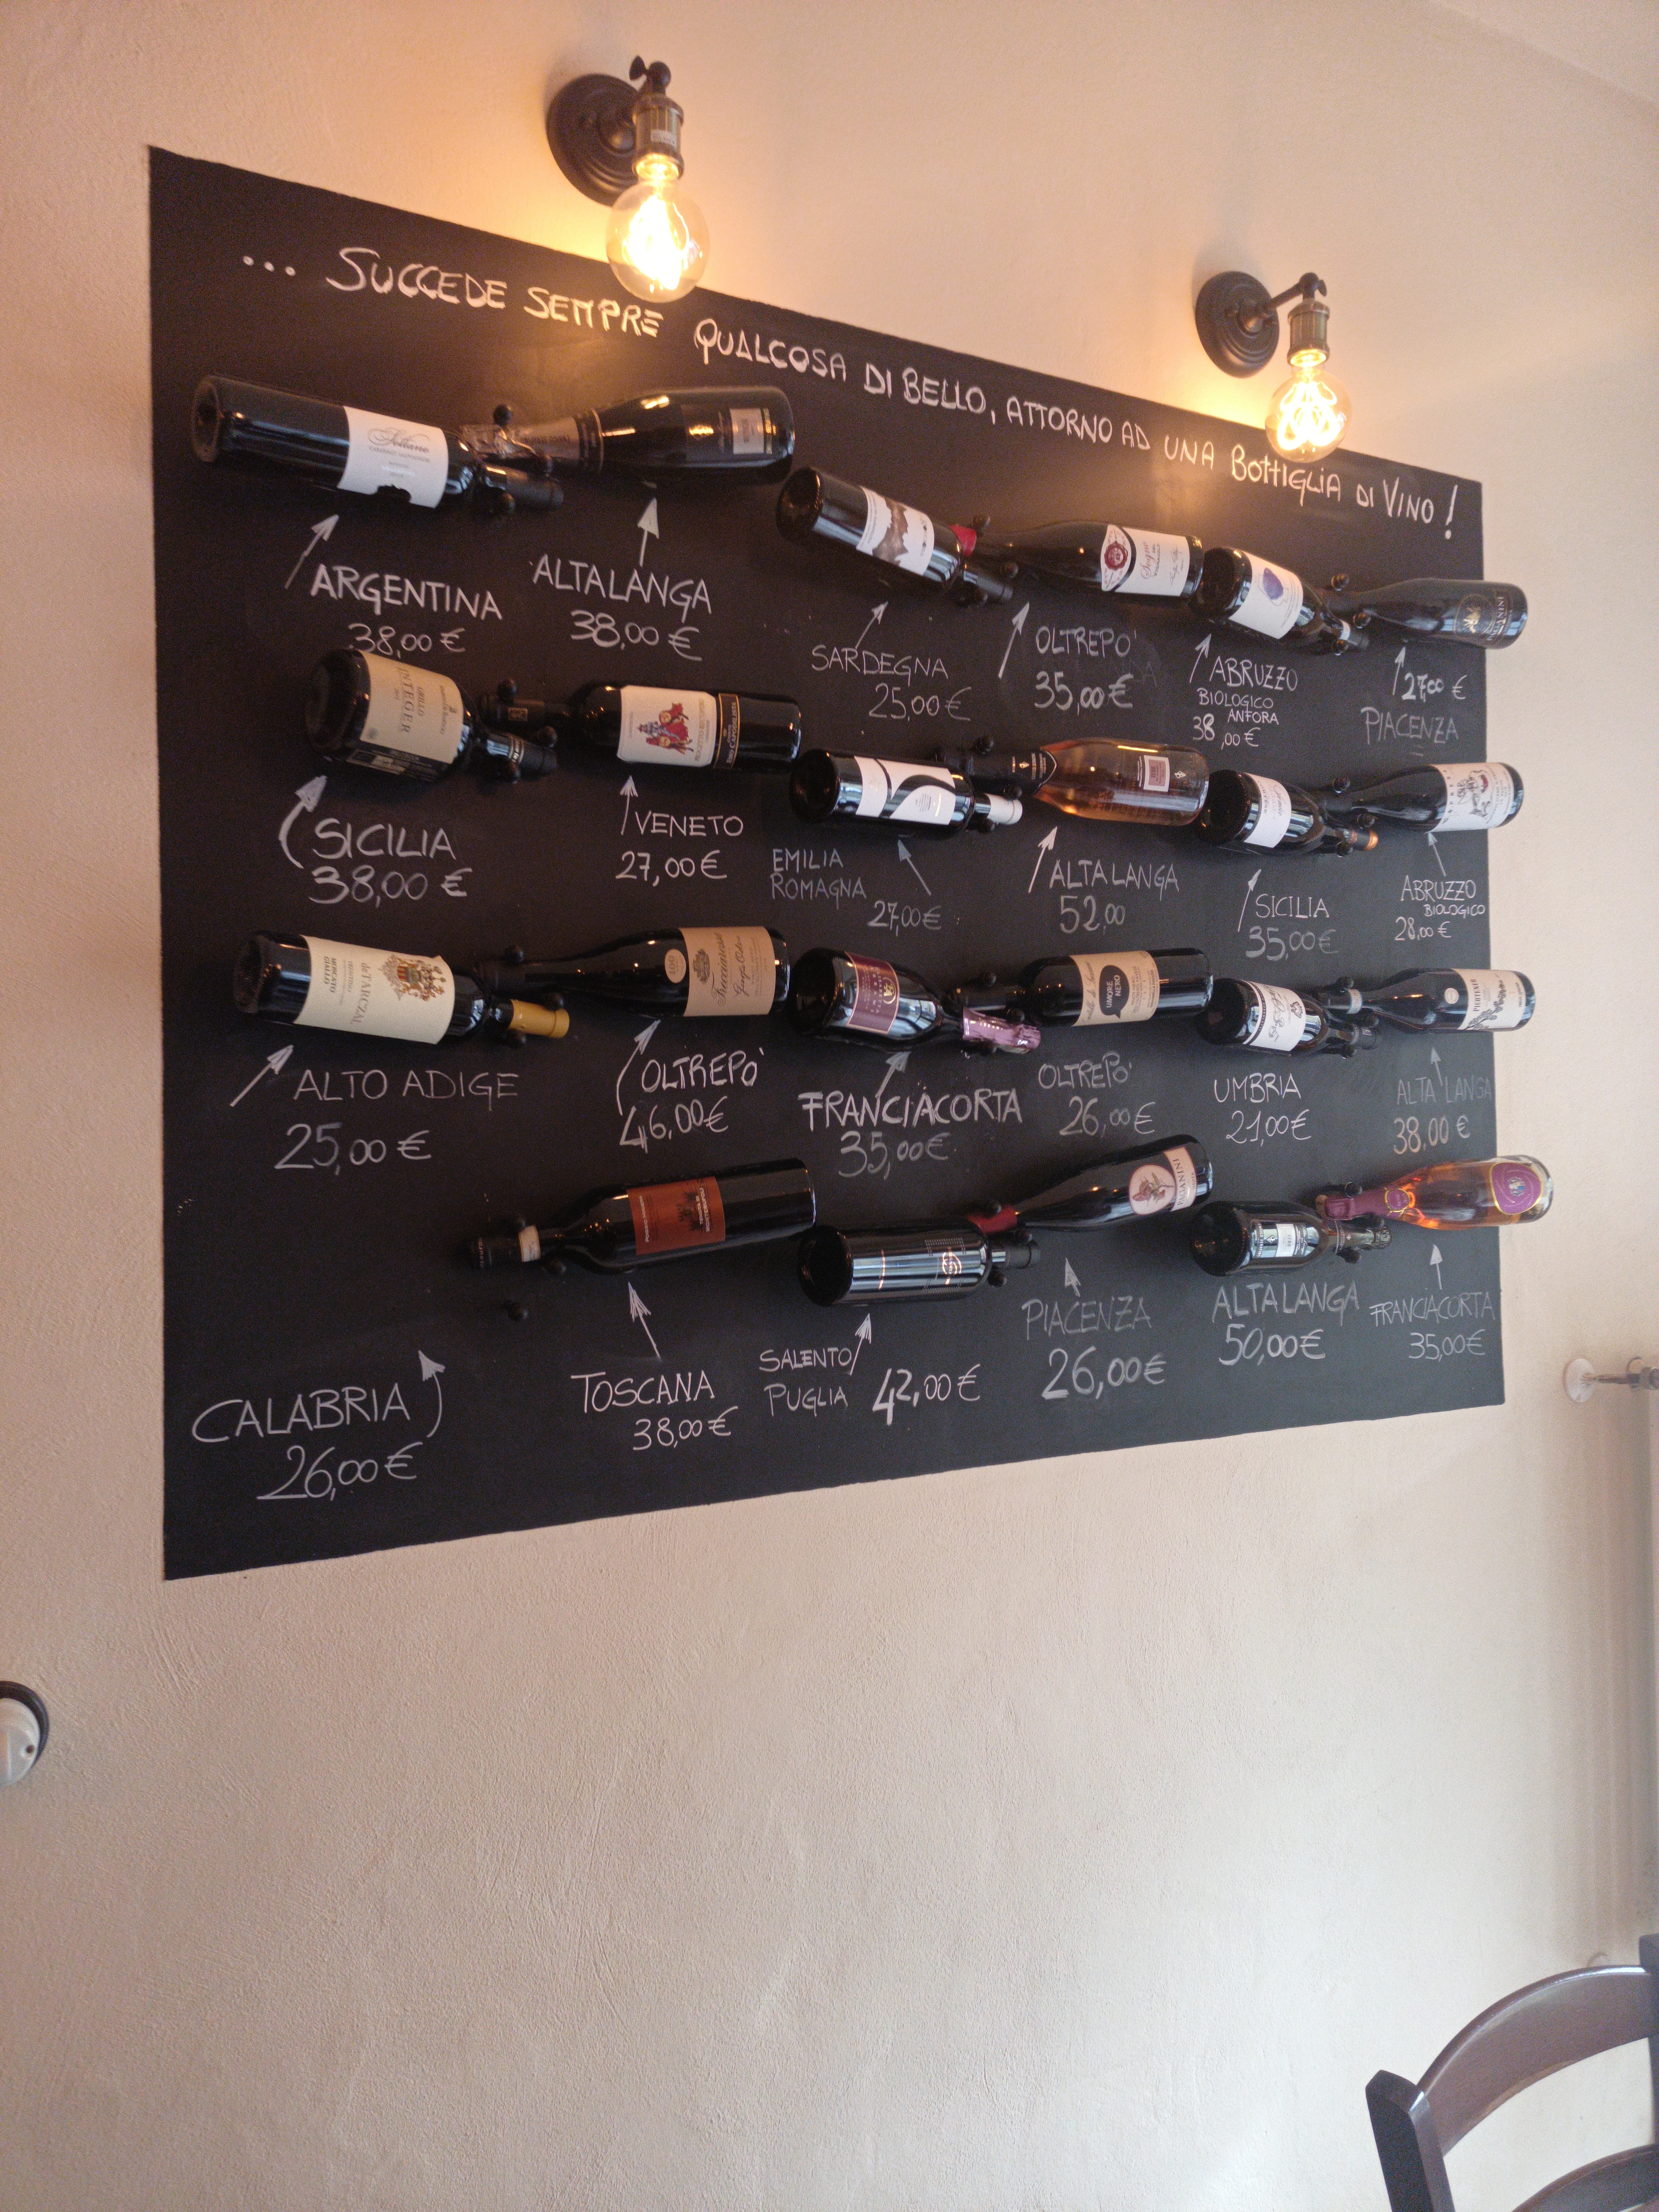 ... SUCCEDE SEMPRE QUALCOSA DI BELLO, ATTORNO AD UNA BOTTIGLIA DI VINO!
Sottano
ARGENTINA
38,00 €
ALTALANGA
38,00 €
SARDEGNA
25,00 €
OLTREPO'
35,00 €
ABRUZZO
BIOLOGICO
ANFORA
38,00 €
27,00 €
PIACENZA
GRILLO
INTEGER
SICILIA
38,00 €
VENETO
27,00 €
EMILIA
ROMAGNA
27,00 €
ALTA LANGA
52,00
SICILIA
35,00 €
ABRUZZO
BIOLOGICO
28,00 €
de TARCZAL
ALTO ADIGE
25,00 €
Frecciarossa
OLTREPO'
46,00 €
FRANCIACORTA
35,00 €
UMORE
NERO
OLTREPO'
26,00 €
UMBRIA
21,00 €
ALTA LANGA
38,00 €
CALABRIA
26,00 €
TOSCANA
38,00 €
SALENTO
PUGLIA
42,00 €
PIACENZA
26,00 €
ALTALANGA
50,00 €
FRANCIACORTA
35,00 €